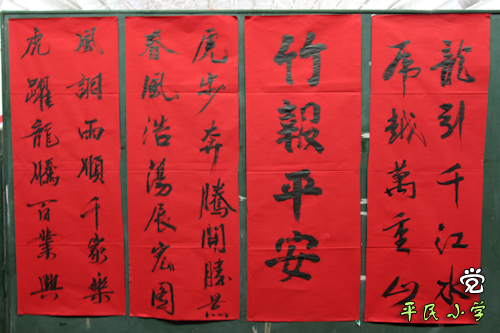 龍引千江水
虎越萬重山
竹報平安
虎步奔騰開勝景
春風浩蕩展宏圖
風調雨順千家樂
虎躍龍騰百業興
平民小学